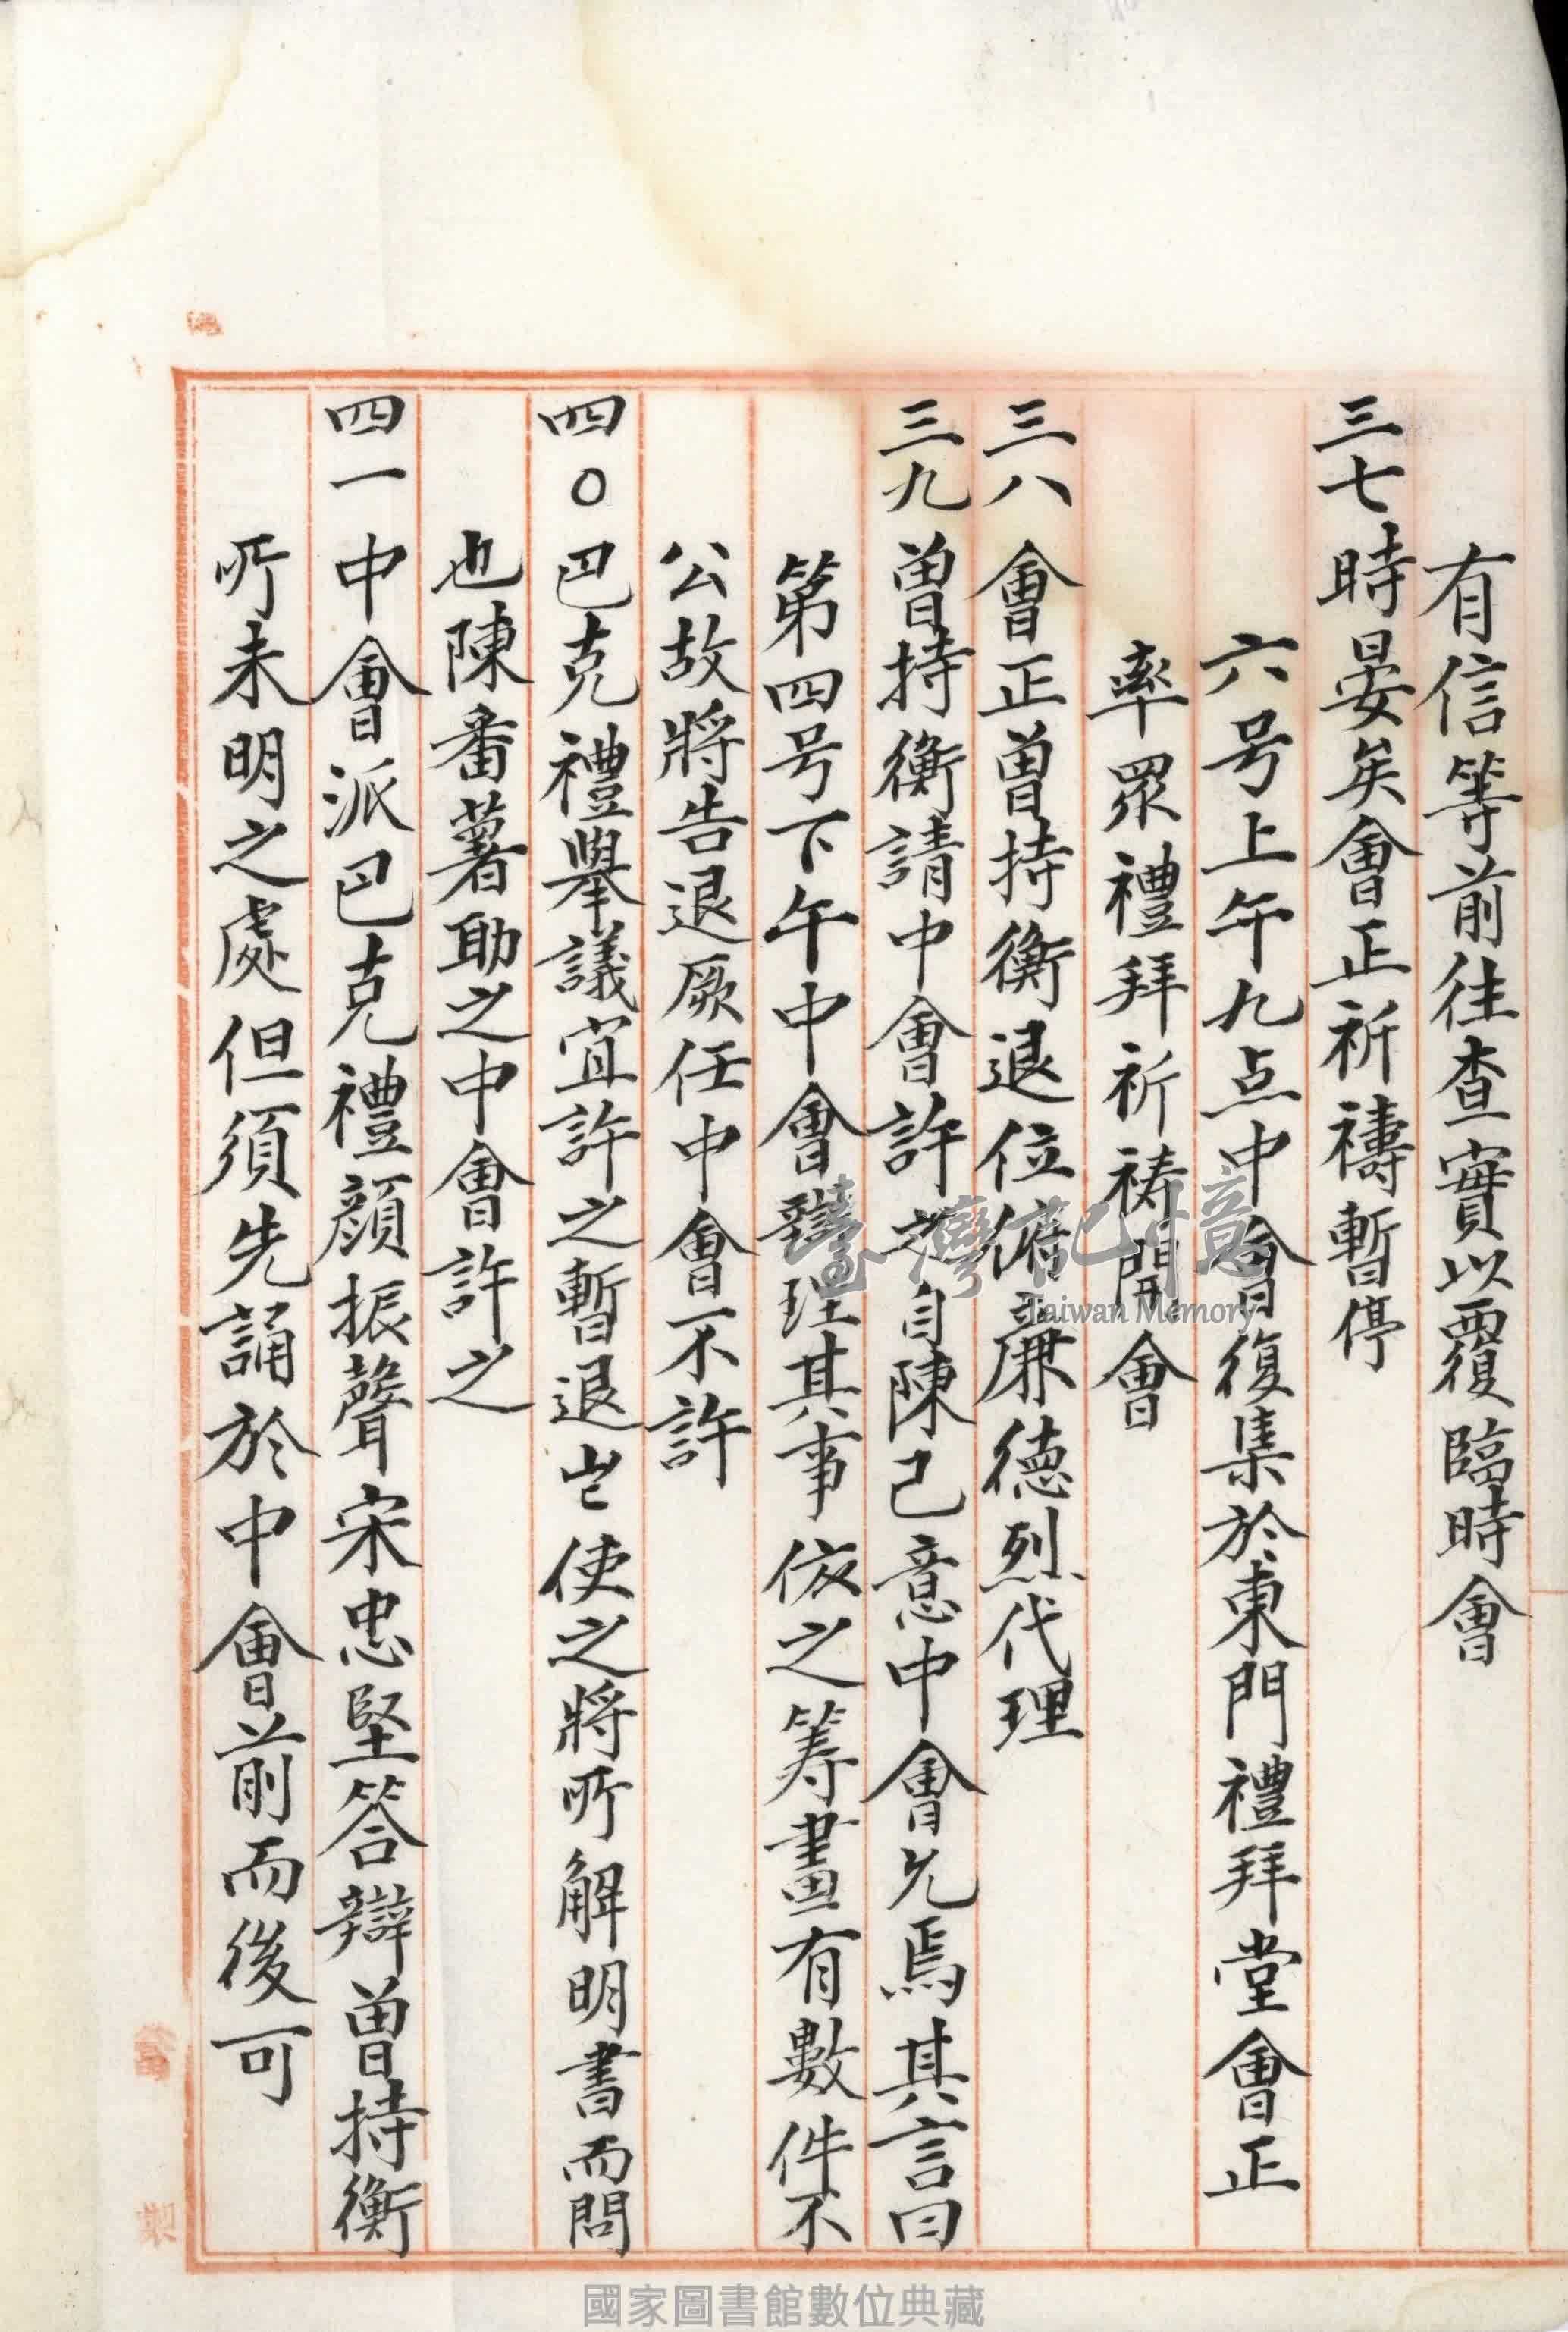 有信等前往查實以覆臨時會
三七時晏矣會正祈禱暫停
六号上午九点中會復集於東門禮拜堂會正
率眾禮拜祈祷開會
三八會正曾持衡退位偹廉德烈代理
三九曾持衡請中會許之自陳己意中會允焉其言曰
第四号下午中會辦理其事依之筹畫有數件不
公故將告退厥任中會不許
四〇巴克禮舉議宜許之暫退岀使之將所解明書而問
也陳番薯助之中會許之
四一中會派巴克禮顔振聲宋忠堅答辯曾持衡
所未明之處但須先誦於中會前而後可
臺灣記憶
Taiwan Memory
國家圖書館數位典藏